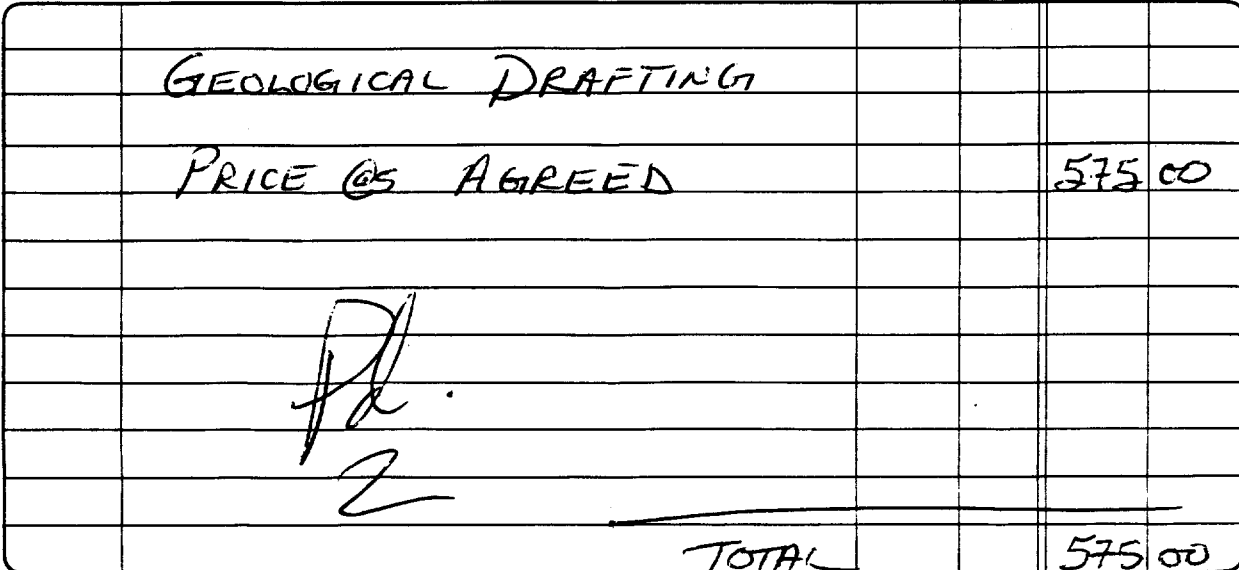 GEOLOGICAL DRAFTING
PRICE @s AGREED 575 00
Pd.
2
TOTAL 575 00